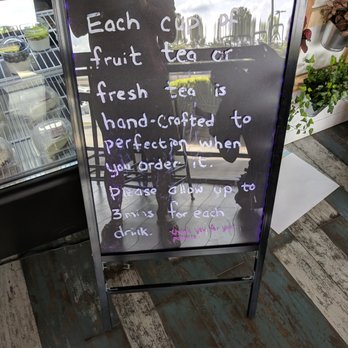 Each cup of
fruit tea or
fresh tea is
hand-crafted to
perfection when
you order it.
Please allow up to
3mins for each
drink.